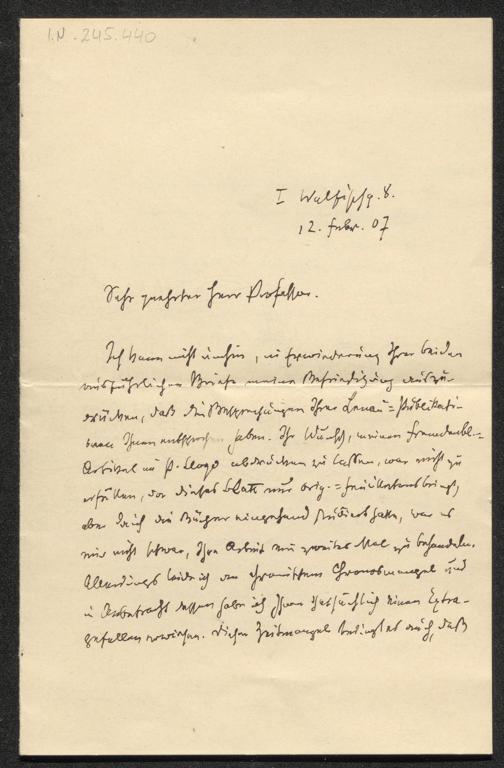 I.N. 245.440
I Walfischg. 8.
12. Febr. 07
Sehr geehrter Herr Professor.
Ich kann nicht umhin, in Erwiederung Ihrer beiden
ausführlichen Briefe meine Befriedigung auszu-
drücken, daß die Besprechungen Ihrer Lenau=Publikati-
onen Ihnen entsprochen haben. Ihr Wunsch, meinen Fremdenbl.-
Artikel im P. Lloyd abdrucken zu lassen, war nicht zu
erfüllen, da dieses Blatt nur orig.=Feuilletons bringt,
aber da ich die Bücher eingehend studiert hatte, war es
mir nicht schwer, Ihre Arbeit ein zweites Mal zu behandeln.
Allerdings leide ich an chronischem Chronosmangel und
in Anbetracht dessen habe ich Ihnen thatsächlich einen Extra-
gefallen erwiesen. Dieser Zeitmangel bedingt es auch, daß